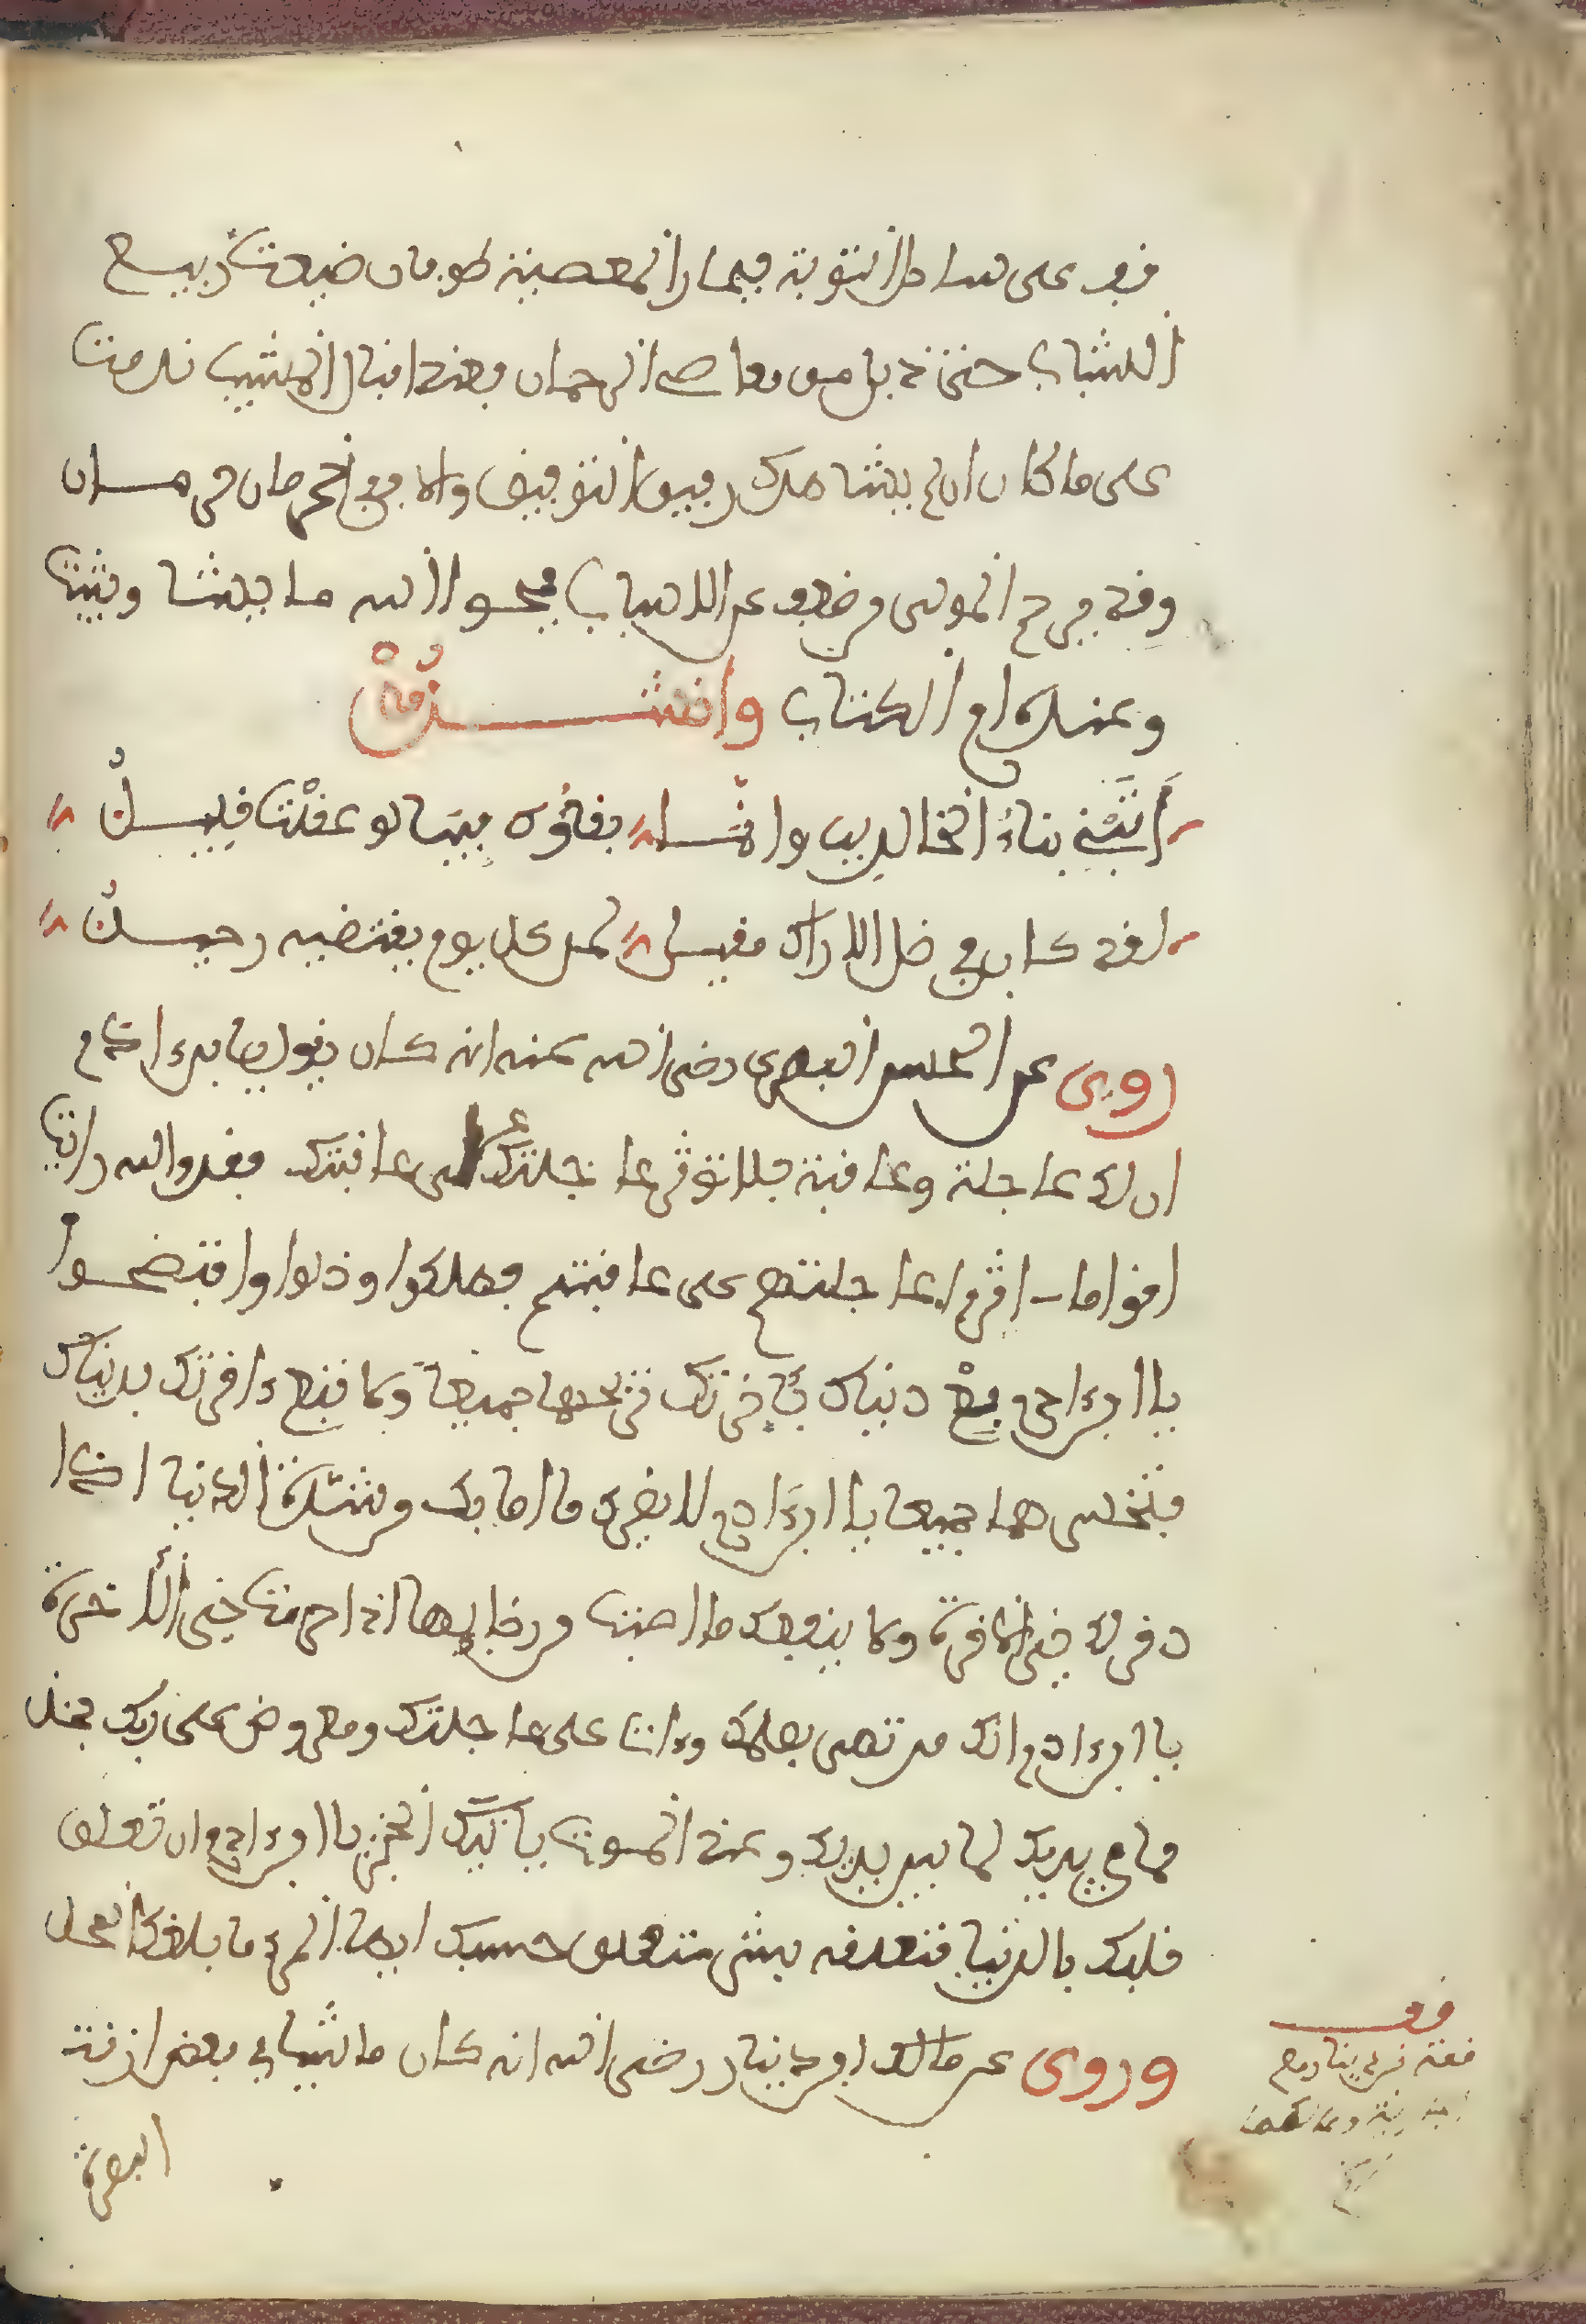 غرق على ساحل التوبة فيمار المعصية طوفان ضيعت ربيع
الشباب حتى ذبل من معاصي الرحمان فعند اقبال المشيب ندمت
على ما كان ان لم يشاهدك رفيق التوفيق والا فموج الحرمان في هسان
وقد فرح الموسى وخطف عن الاسباب يمحوا الله ما يشا ويثبت
وعنده ام الكتاب وانشدوا
أتبني بناء الخالدين وانما بقاؤك فيها لو عقلت قليل
لقد كان في ظل الاراك مقيل لمن كل يوم يقتضيه رحيل
روى عن الحسن البصري رضي الله عنه انه كان يقول يا ابن ءادم
ان لك عاجلة وعاقبة فلا توثر عاجلتك على عاقبتك فقد والله رايت
اقواما اثروا عاجلتهم على عاقبتهم فهلكوا وذلوا وافتضحوا
يا ابن ءادم بع دنياك بآخرتك تربحهما جميعا ولا تبع ءاخرتك بدنياك
فتخسرهما جميعا يا ابن ءادم لا يضرك ما اصابك من شدة الدنيا اذا
ذخر لك خير الاخرة ولا ينفعك ما اصبت من رخايها اذا حرمت خير الاخرة
يا ابن ءادم انك مرتهن بعملك وءات على عاجلتك ومعروض على ربك فخذ
مما في يديك لما بين يديك وعند الموت ياتيك الخبر يا ابن ءادم ان تعلق
قلبك بالدنيا فتعلقه بشر متعلق حسبك ايها المرء ما بلغك المحل
وروى عن مالك ابن دينار رضي الله انه كان ماشيا في بعض ازقة
البصرة
قف